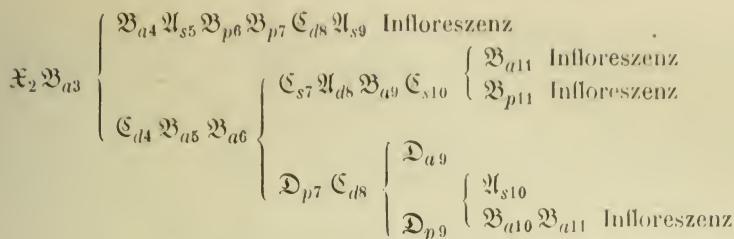 𝔅a4 𝔄s5 𝔅p6 𝔅p7 ℭd8 𝔄s9 Infloreszenz
𝔛2 𝔅a3
ℭs7 𝔄d8 𝔅a9 ℭs10
𝔅a11 Infloreszenz
𝔅p11 Infloreszenz
ℭd4 𝔅a5 𝔅a6
𝔇p7 ℭd8
𝔇a9
𝔇p9
𝔄s10
𝔅a10 𝔅a11 Infloreszenz